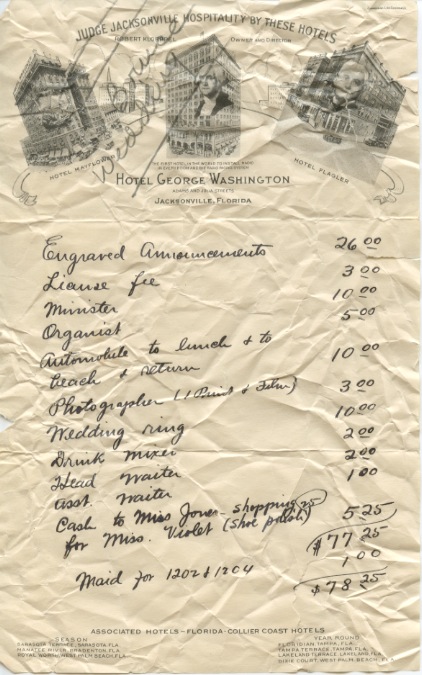 JUDGE JACKSONVILLE HOSPITALITY BY THESE HOTELS
ROBERT KLOEPPEL OWNER AND DIRECTOR
Wedding
HOTEL MAYFLOWER
HOTEL FLAGLER
THE FIRST HOTEL IN THE WORLD TO INSTALL RADIO
HOTEL GEORGE WASHINGTON
ADAMS AND JULIA STREETS
JACKSONVILLE, FLORIDA
Engraved Announcements 26 00
License fee 3 00
Minister 10 00
Organist 5 00
Automobile to lunch & to
beach & return 10 00
Photographer (1 Print & Film) 3 00
Wedding ring 10 00
Drink mixer 2 00
Head Waiter 2 00
Asst. Waiter 1 00
Cash to Miss Jones - shopping 25
for Miss. Violet (shoe polish) 5 25
$77 25
Maid for 1202 & 1204 1 00
$78 25
ASSOCIATED HOTELS - FLORIDA - COLLIER COAST HOTELS
SEASON
SARASOTA TERRACE, SARASOTA, FLA.
MANATEE RIVER, BRADENTON, FLA.
ROYAL WORTH, WEST PALM BEACH, FLA.
YEAR ROUND
FLORIDIAN, TAMPA, FLA.
TAMPA TERRACE, TAMPA, FLA.
LAKELAND TERRACE, LAKELAND, FLA.
DIXIE COURT, WEST PALM BEACH, FLA.